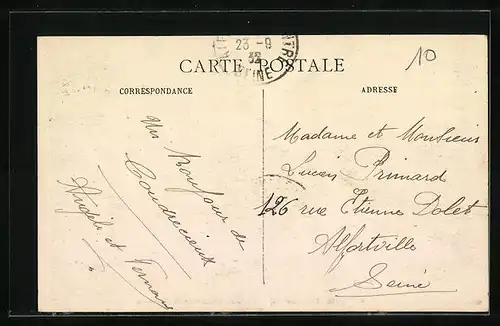 23 -9
32
SEINE
10
CARTE POSTALE
CORRESPONDANCE
ADRESSE
Un Bonjour de
Coudrecieux
Angèle et Fernand
Madame et Monsieur
Lucien Primard
126 rue Etienne Dolet
Alfortville
Seine